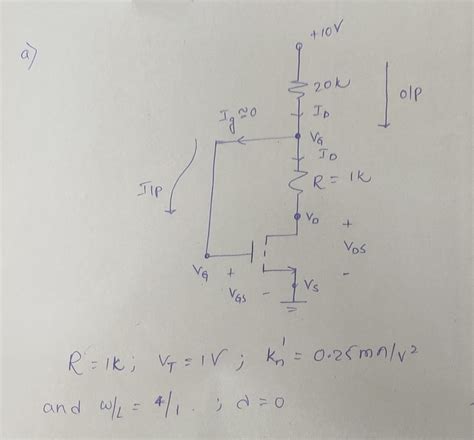 a)
+10V
20k
O/P
I_D
I_g≈0
V_G
I_D
I/P
R = 1k
V_D
+
V_DS
-
V_G
+
V_GS
-
V_S
R = 1k ; V_T = 1V ; k_n' = 0.25 mA/V²
and W/L = 4/1 . ; λ = 0